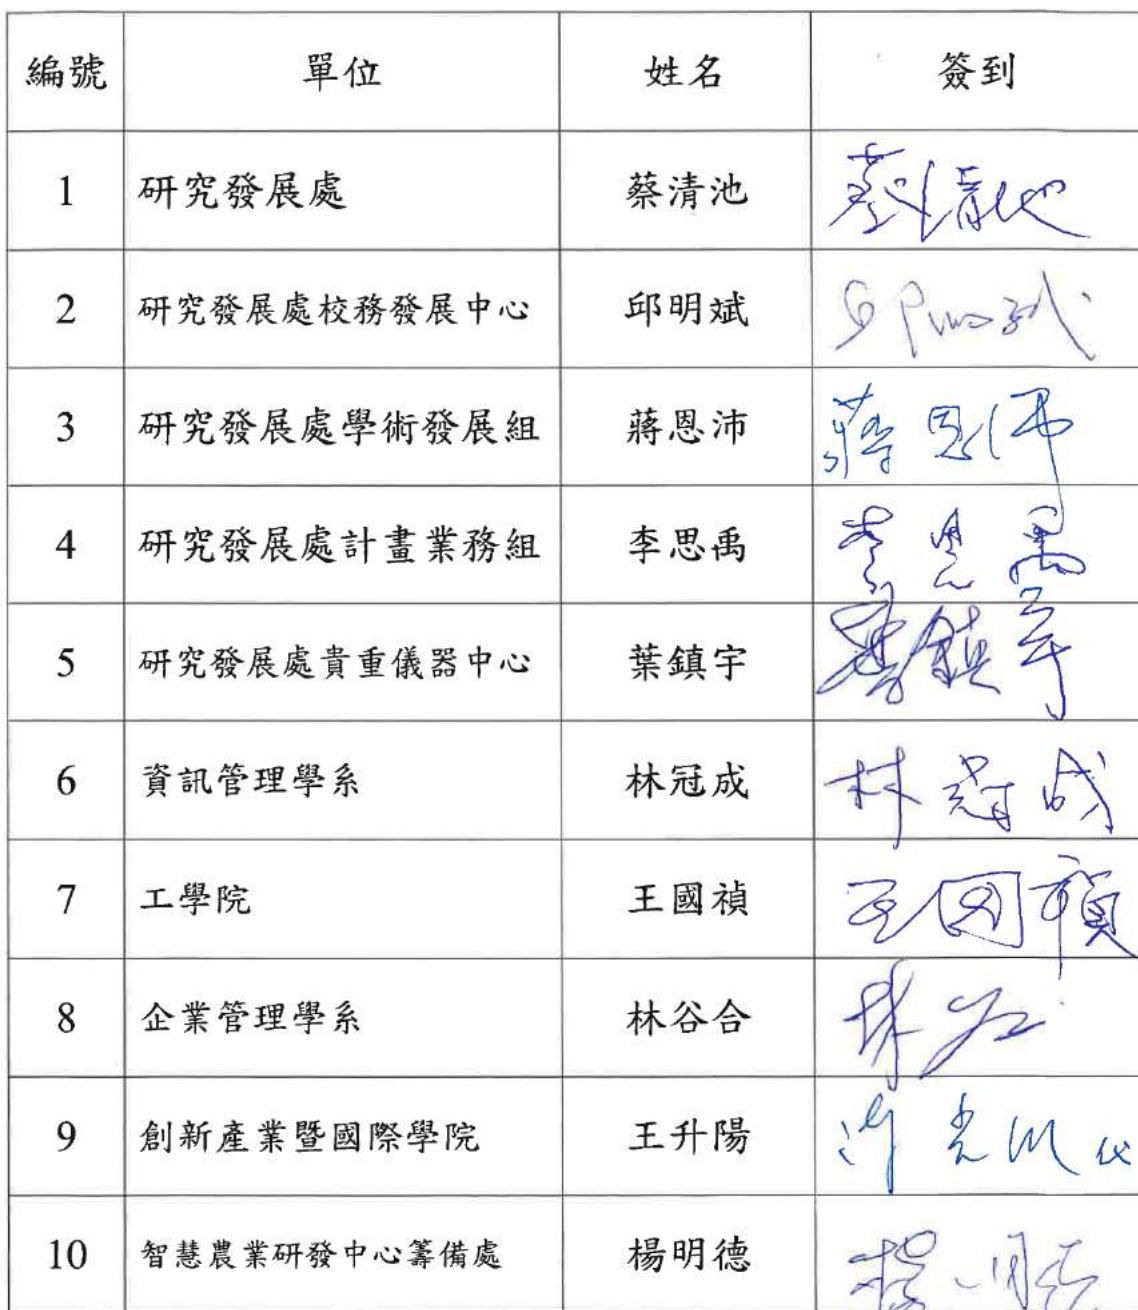 編號 單位 姓名 簽到
1 研究發展處 蔡清池 蔡清池
2 研究發展處校務發展中心 邱明斌 邱明斌
3 研究發展處學術發展組 蔣恩沛 蔣恩沛
4 研究發展處計畫業務組 李思禹 李思禹
5 研究發展處貴重儀器中心 葉鎮宇 葉鎮宇
6 資訊管理學系 林冠成 林冠成
7 工學院 王國禎 王國禎
8 企業管理學系 林谷合 林
9 創新產業暨國際學院 王升陽 代
10 智慧農業研發中心籌備處 楊明德 楊明德